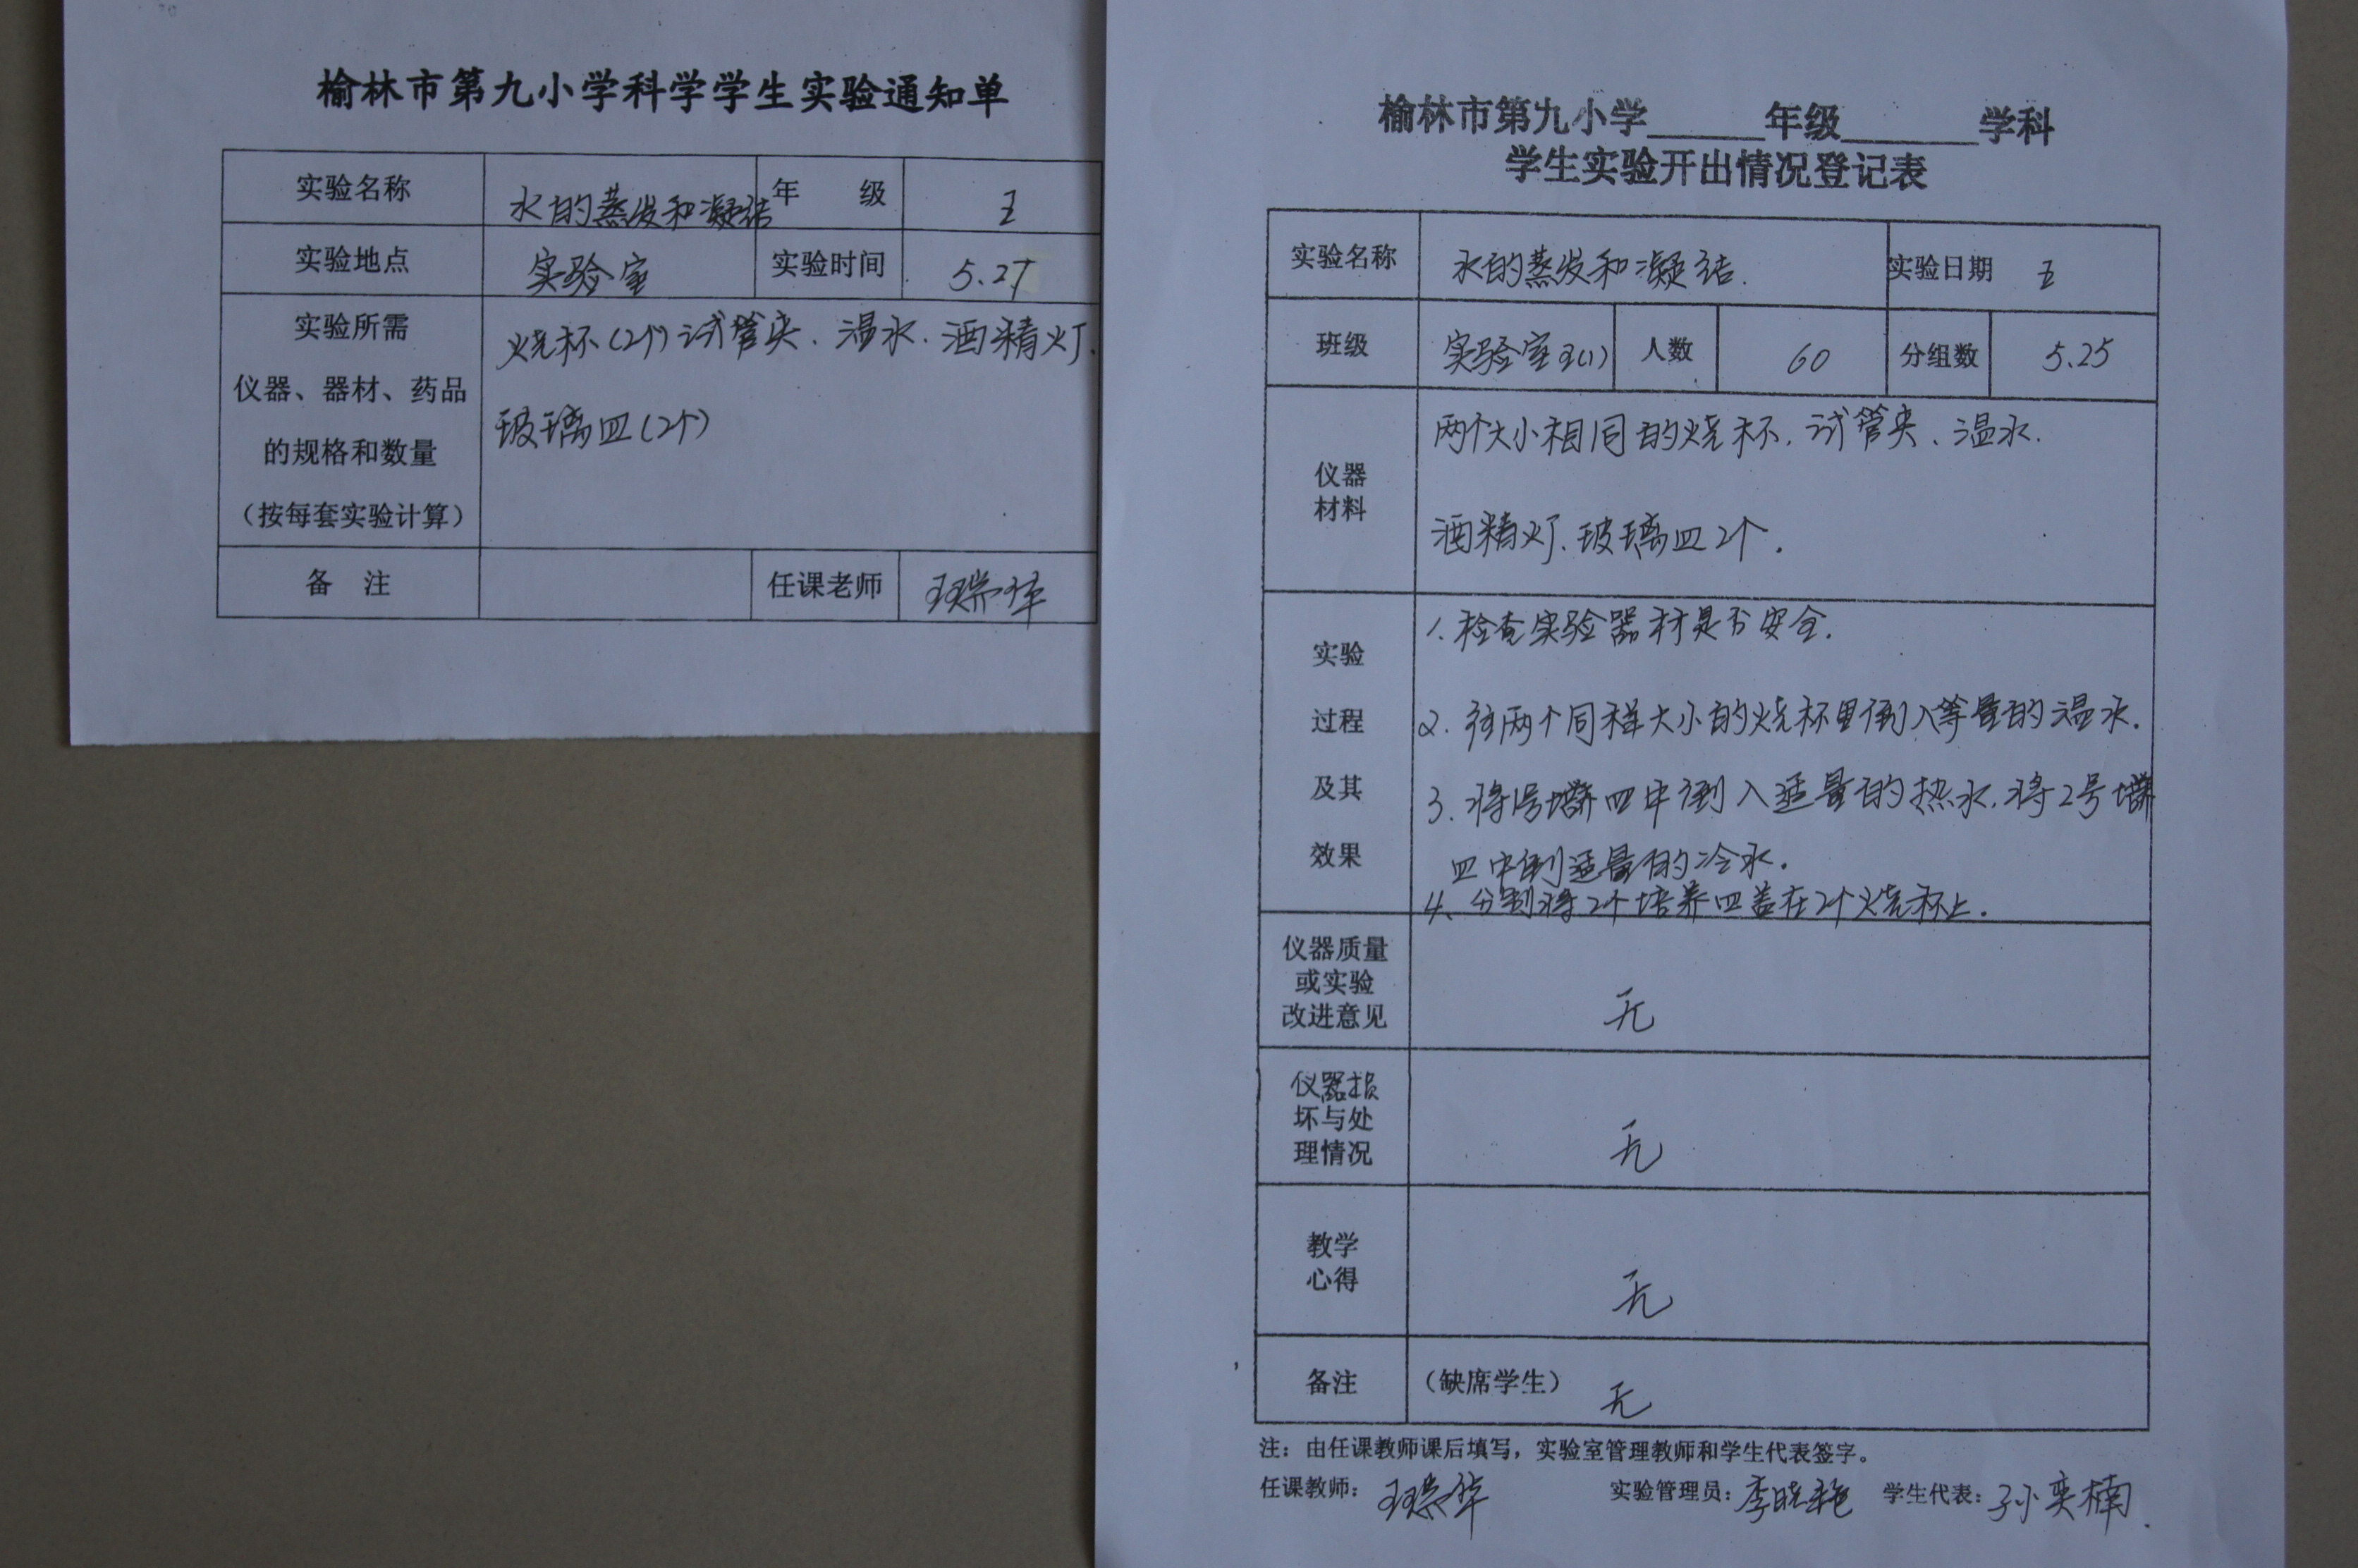 榆林市第九小学科学学生实验通知单
实验名称 水的蒸发和凝结 年 级 五
实验地点 实验室 实验时间 5.27
实验所需
仪器、器材、药品
的规格和数量
（按每套实验计算）
烧杯(2个) 试管夹、温水、酒精灯、
玻璃皿(2个)
备 注 任课老师 王瑞华
榆林市第九小学______年级_______学科
学生实验开出情况登记表
实验名称 水的蒸发和凝结. 实验日期 五
班级 实验室五(1) 人数 60 分组数 5.25
仪器
材料
两个大小相同的烧杯、试管夹、温水、
酒精灯、玻璃皿2个.
实验
过程
及其
效果
1. 检查实验器材是否安全.
2. 往两个同样大小的烧杯里倒入等量的温水.
3. 将1号培养皿中倒入适量的热水,将2号培养
皿中倒适量的冷水.
4. 分别将2个培养皿盖在2个烧杯上.
仪器质量
或实验
改进意见
无
仪器损
坏与处
理情况
无
教学
心得
无
备注 （缺席学生） 无
注：由任课教师课后填写，实验室管理教师和学生代表签字。
任课教师：王瑞华 实验管理员：李晓艳 学生代表：孙奕楠.